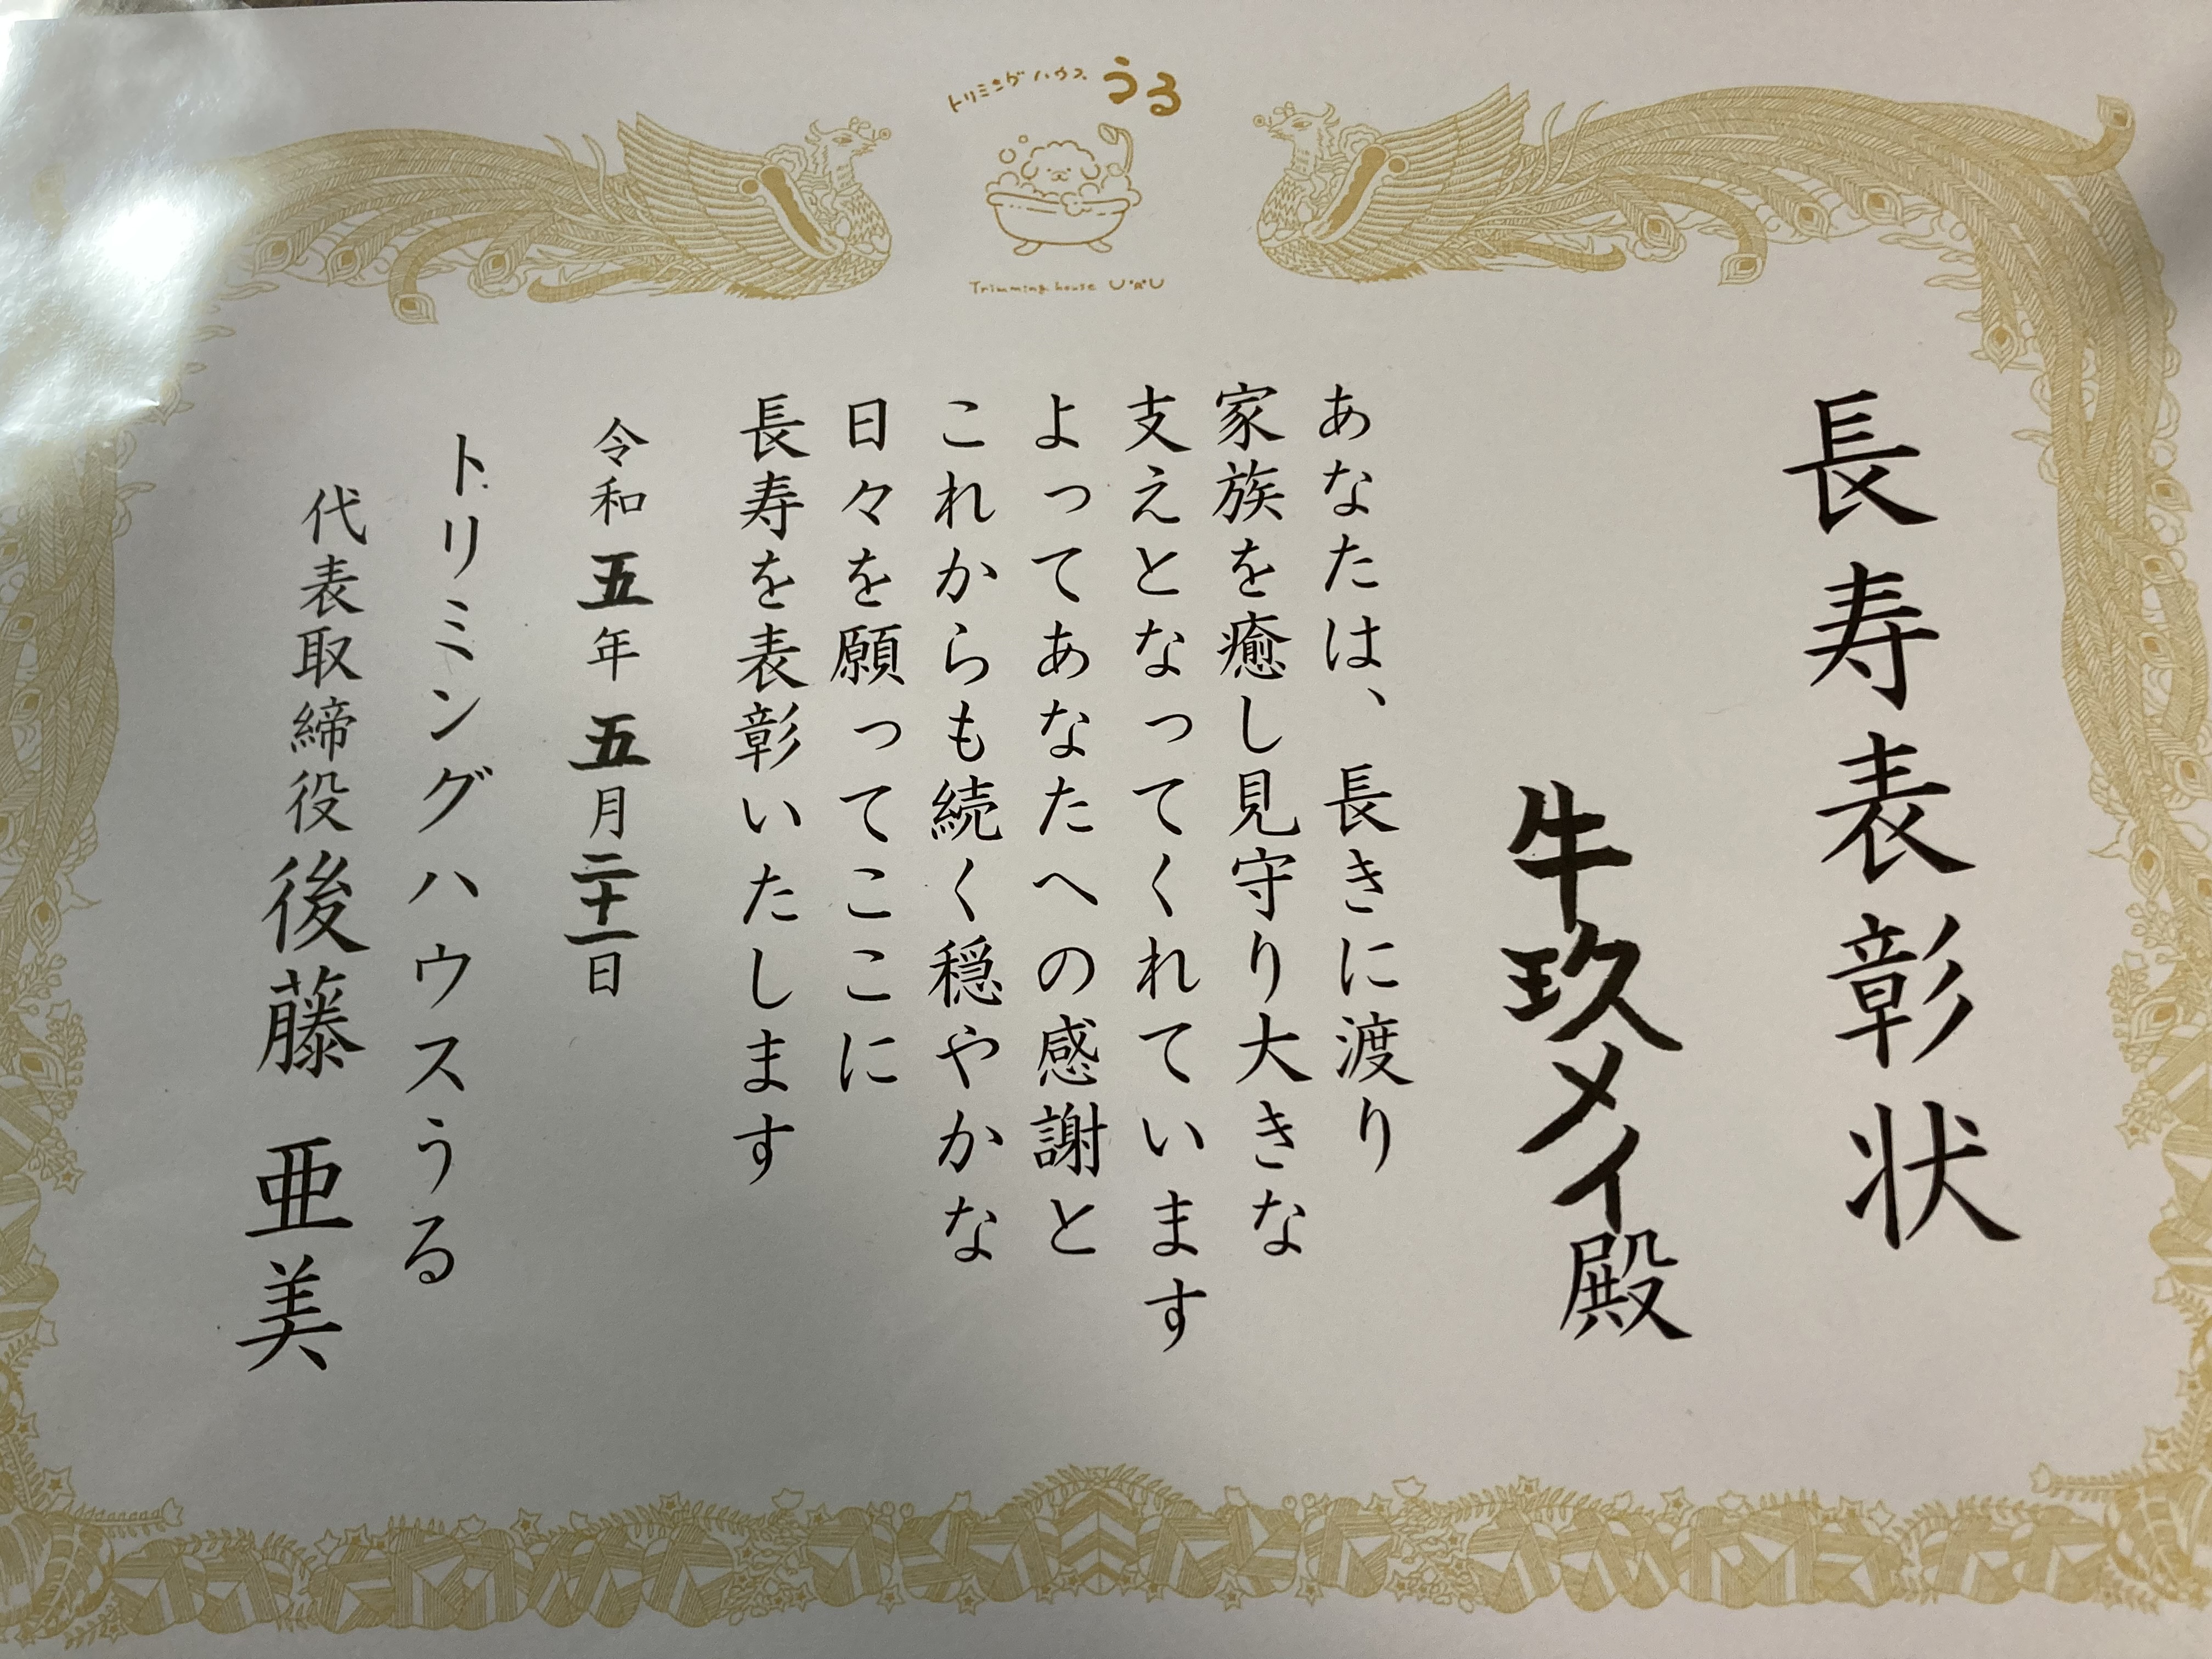 トリミングハウス うる
Trimming house U・ᴥ・U
長寿表彰状
牛玖メイ殿
あなたは、長きに渡り
家族を癒し見守り大きな
支えとなってくれています
よってあなたへの感謝と
これからも続く穏やかな
日々を願ってここに
長寿を表彰いたします
令和五年五月二十一日
トリミングハウスうる
代表取締役 後藤 亜美